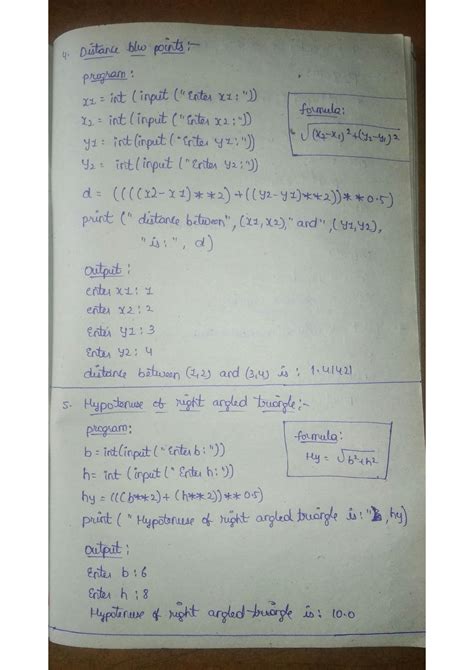 4. Distance b/w points:-
program:
x1 = int (input ("Enter x1:"))
x2 = int (input ("Enter x2:"))
y1 = int(input ("Enter y1:"))
y2 = int(input ("Enter y2:"))
formula:
√(x2-x1)²+(y2-y1)²
d = ((((x2-x1)**2)+((y2-y1)**2))**0.5)
print ("distance between", (x1,x2),"and",(y1,y2),
"is:", d)
Output:
enter x1: 1
enter x2: 2
Enter y1: 3
Enter y2: 4
distance between (1,2) and (3,4) is : 1.41421
5. Hypotenuse of right angled triangle:-
program:
b = int(input ("Enter b:"))
h = int (input ("Enter h:"))
formula:
Hy = √b²+h²
hy = (((b**2)+(h**2))**0.5)
print ("Hypotenuse of right angled triangle is:", hy)
Output:
Enter b: 6
Enter h: 8
Hypotenuse of right angled triangle is: 10.0